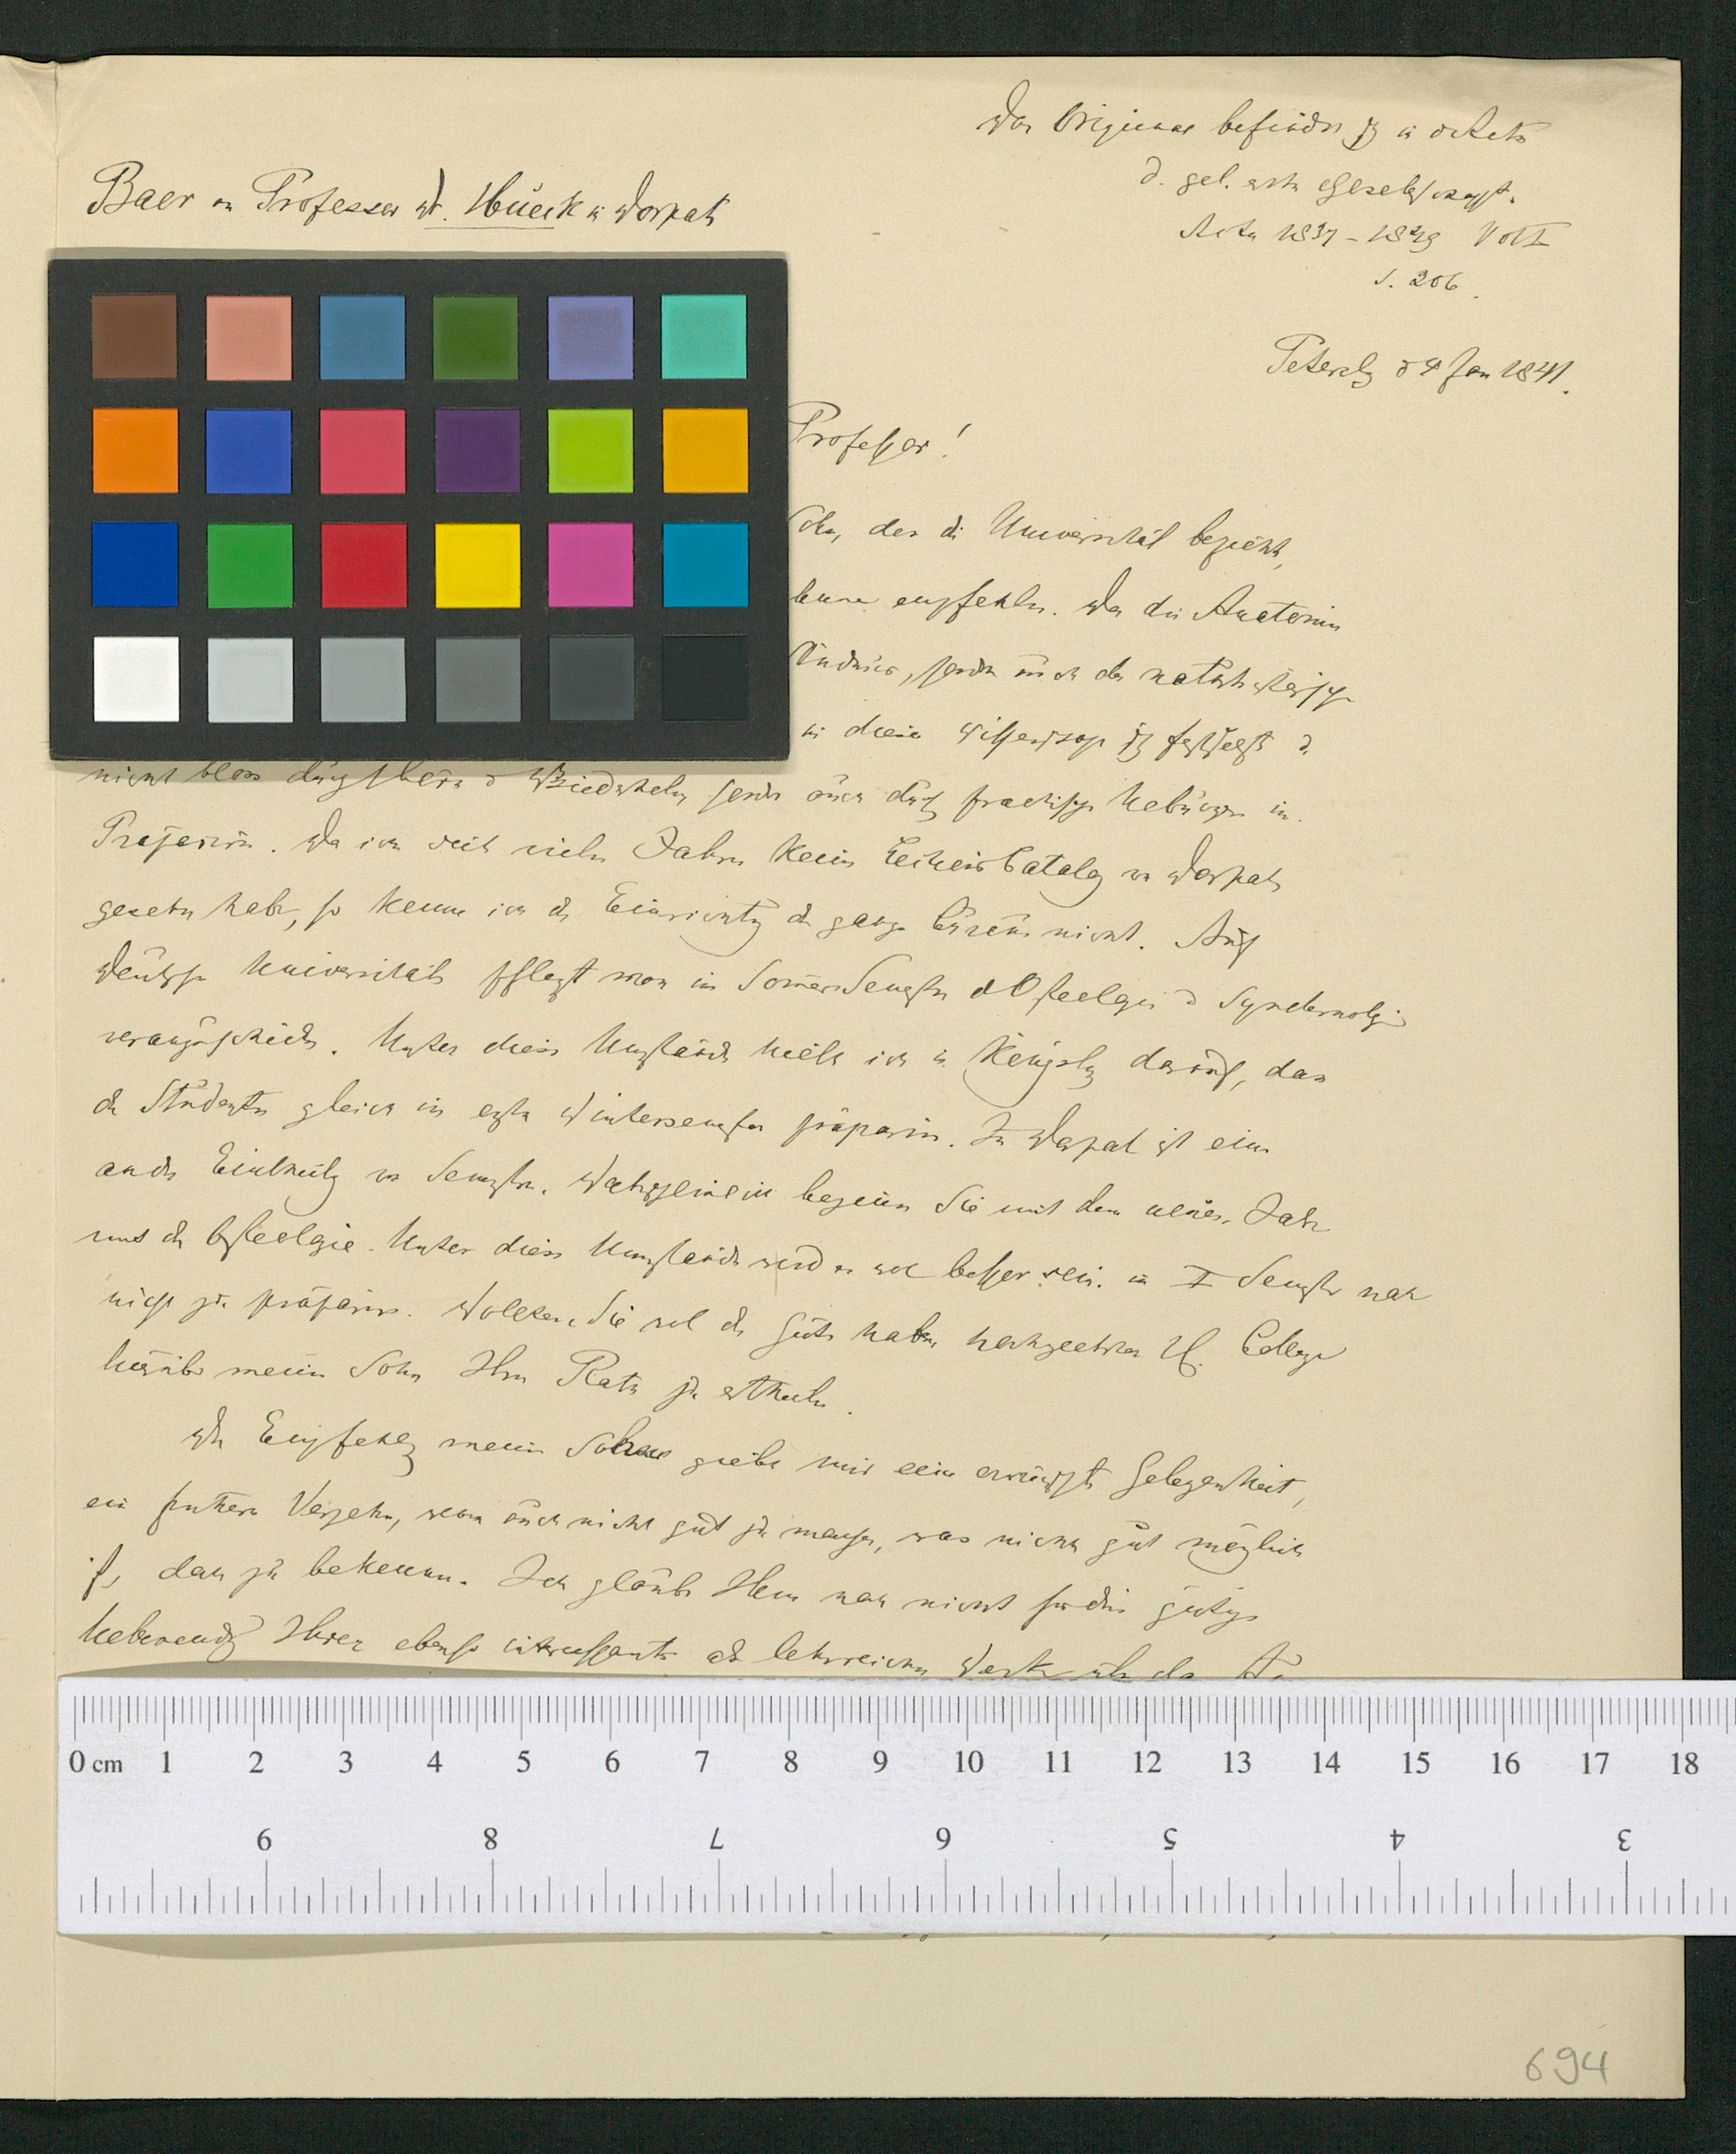 Das Original befindet sich in d Acten
d. gel. estn Gesellschaft.
Acta 1837-1849 Vol I
S. 206.
Baer an Professor Dr. Hueck in Dorpat
Petersbg d 4 Jan 1841.
Professor!
Sohn, der die Universität bezieht,
empfehlen. Da die Anatomie
sondern auch der
in dieser Wissenschaft
nicht bloss durch Hören u Wiederholen, sondern auch durch practische Uebungen im
Präpariren. Da ich seit vielen Jahren keinen Lections Catalog von Dorpat
gesehn habe, so kenne ich die Einrichtung des ganzen Cursus nicht. Auf
Deutschen Universitäten pflegt man im Sommer Semester d Osteologie u Syndesmologie
vorauszuschicken. Unter diesen Umständen hielt ich in Königsbg darauf, dass
die Studenten gleich im ersten Wintersemester präpariren. In Dorpat ist eine
andre Eintheilung der Semester. Wahrscheinlich beginnen Sie mit dem neuen Jahr
mit der Osteologie. Unter diesen Umständen wird es wol besser sein, im I Semester noch
nicht zu präpariren. Wollten Sie wol die Güte haben hochgeehrter H. College
hierüber meinem Sohn Ihren Rath zu ertheilen.
Die Empfehlung meines Sohnes giebt mir eine erwünschte Gelegenheit,
ein früheres Versehn, wenn auch nicht gut zu machen, was nicht gut möglich
ist, doch zu bekennen. Ich glaube Ihnen noch nicht für die gütige
Uebersendung Ihres ebenso interessanten als lehrreichen Werkes über das
0 cm 1 2 3 4 5 6 7 8 9 10 11 12 13 14 15 16 17 18
9 8 7 6 5 4 3
694